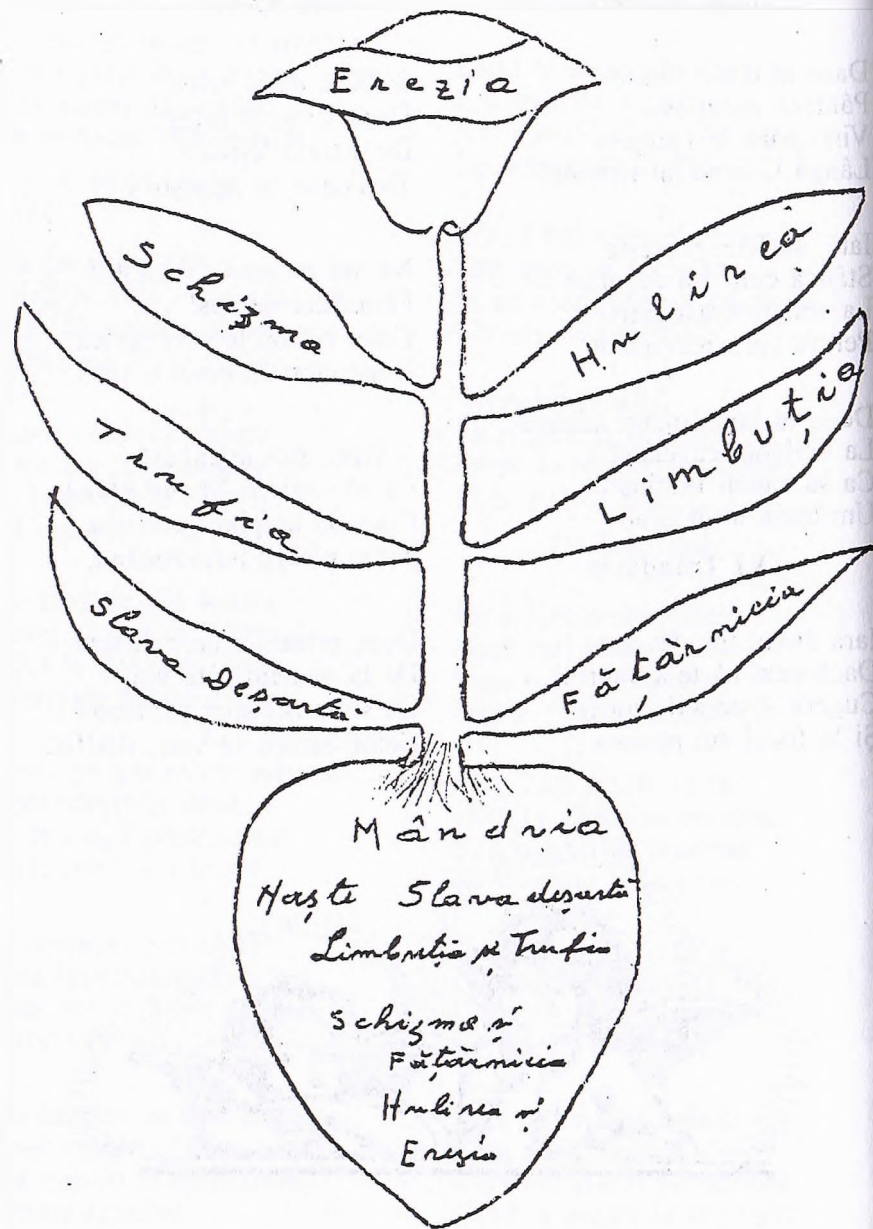 Erezia
Schizma
Hulirea
Trufia
Limbuția
Slava Deșarta
Fățărnicia
Mândria
Naște Slava deșartă
Limbuția și Trufia
Schizma și
Fățărnicia
Hulirea și
Erezia